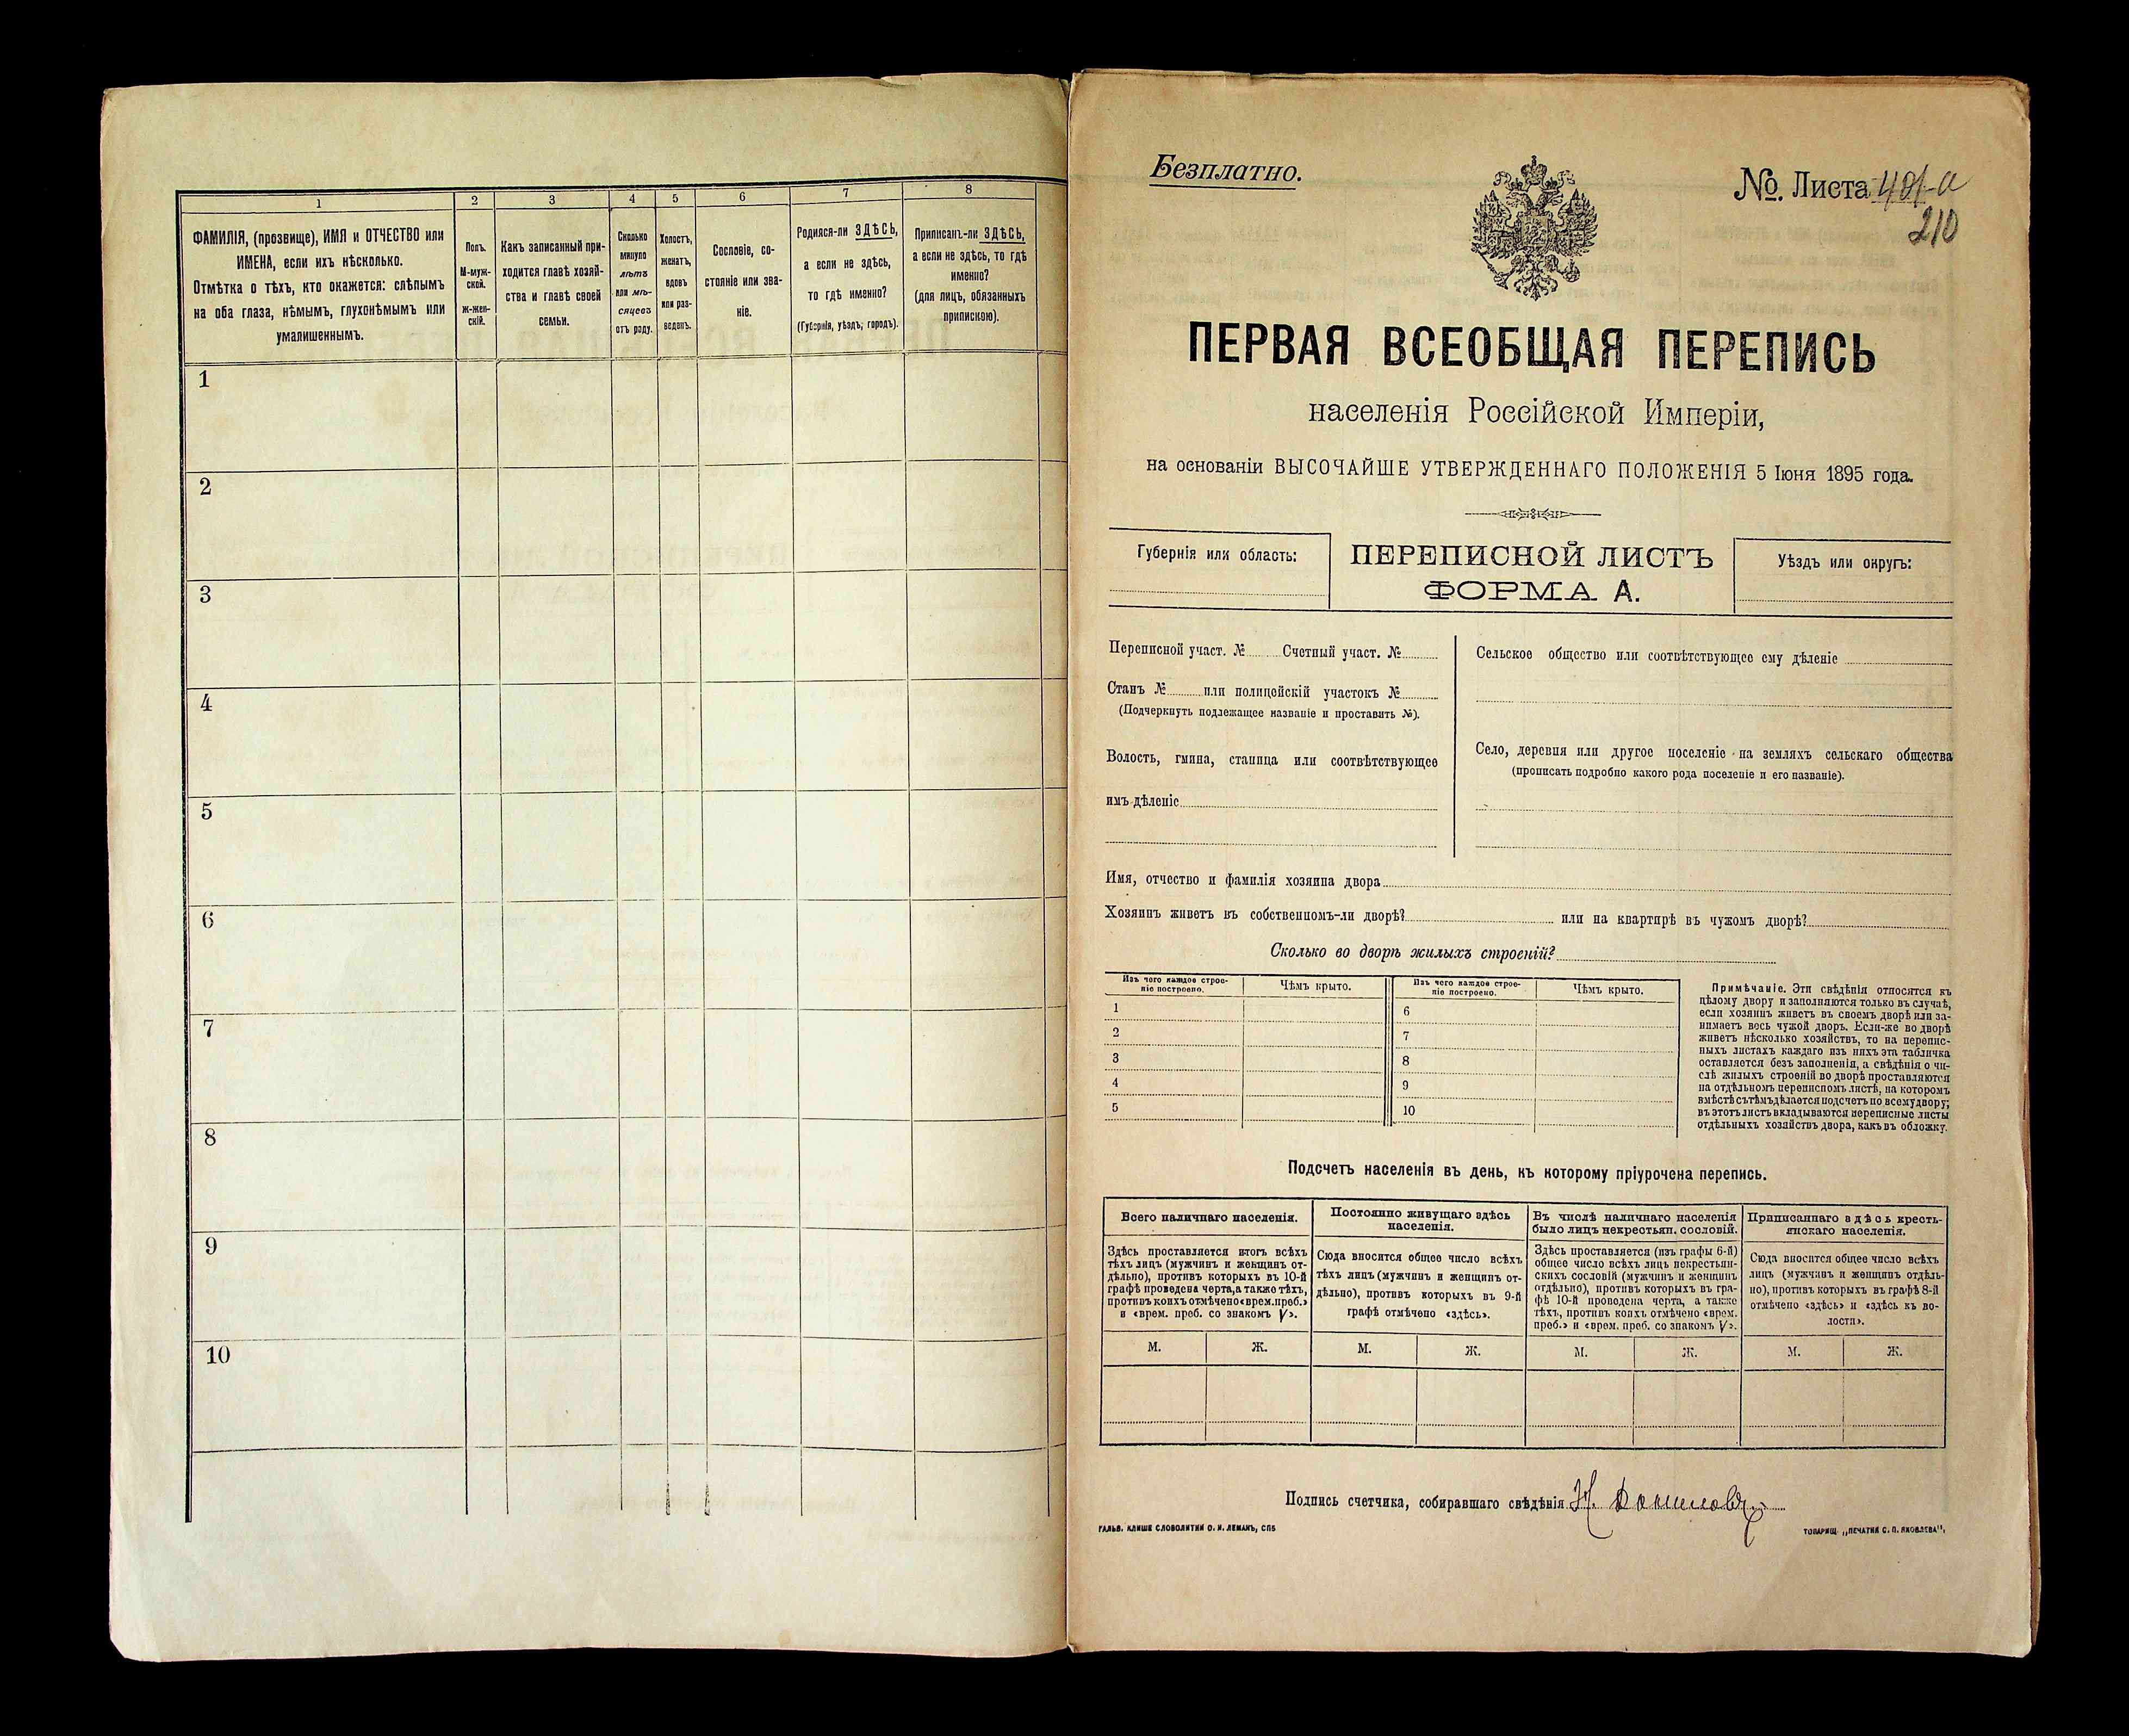 1 2 3 4 5 6 7 8
ФАМИЛІЯ, (прозвище), ИМЯ и ОТЧЕСТВО или
ИМЕНА, если ихъ нѣсколько.
Отмѣтка о тѣхъ, кто окажется: слѣпымъ
на оба глаза, нѣмымъ, глухонѣмымъ или
умалишеннымъ.
Полъ.
М-муж-
ской.
Ж-жен-
скій.
Какъ записанный при-
ходится главѣ хозяй-
ства и главѣ своей
семьи.
Сколько
минуло
лѣтъ
или мѣ-
сяцевъ
отъ роду.
Холостъ,
женатъ,
вдовъ
или раз-
веденъ.
Сословіе, со-
стояніе или зва-
ніе.
Родился-ли ЗДѢСЬ,
а если не здѣсь,
то гдѣ именно?
(Губернія, уѣздъ, городъ).
Приписанъ-ли ЗДѢСЬ,
а если не здѣсь, то гдѣ
именно?
(для лицъ, обязанныхъ
припискою).
1
2
3
4
5
6
7
8
9
10
Безплатно.
№. Листа
210
ПЕРВАЯ ВСЕОБЩАЯ ПЕРЕПИСЬ
населенія Россійской Имперіи,
на основаніи ВЫСОЧАЙШЕ УТВЕРЖДЕННАГО ПОЛОЖЕНІЯ 5 Іюня 1895 года.
Губернія или область:
ПЕРЕПИСНОЙ ЛИСТЪ
ФОРМА А.
Уѣздъ или округъ:
Переписной участ. № Счетный участ. №
Станъ № или полицейскій участокъ №
(Подчеркнуть подлежащее названіе и проставить №).
Волость, гмина, станица или соотвѣтствующее
имъ дѣленіе
Сельское общество или соотвѣтствующее ему дѣленіе
Село, деревня или другое поселеніе на земляхъ сельскаго общества
(прописать подробно какого рода поселеніе и его названіе).
Имя, отчество и фамилія хозяина двора
Хозяинъ живетъ въ собственномъ-ли дворѣ? или на квартирѣ въ чужомъ дворѣ?
Сколько во дворѣ жилыхъ строеній?
Изъ чего каждое строе-
ніе построено.
Чѣмъ крыто.
Изъ чего каждое строе-
ніе построено.
Чѣмъ крыто.
1 6
2 7
3 8
4 9
5 10
Примѣчаніе. Эти свѣдѣнія относятся къ
цѣлому двору и заполняются только въ случаѣ,
если хозяинъ живетъ въ своемъ дворѣ или за-
нимаетъ весь чужой дворъ. Если-же во дворѣ
живетъ нѣсколько хозяйствъ, то на перепис-
ныхъ листахъ каждаго изъ нихъ эта табличка
оставляется безъ заполненія, а свѣдѣнія о чи-
слѣ жилыхъ строеній во дворѣ проставляются
на отдѣльномъ переписномъ листѣ, на которомъ
вмѣстѣ съ тѣмъ дѣлается подсчетъ по всему двору;
въ этотъ листъ вкладываются переписные листы
отдѣльныхъ хозяйствъ двора, какъ въ обложку.
Подсчетъ населенія въ день, къ которому пріурочена перепись.
Всего наличнаго населенія.
Здѣсь проставляется итогъ всѣхъ
тѣхъ лицъ (мужчинъ и женщинъ от-
дѣльно), противъ которыхъ въ 10-й
графѣ проведена черта, а также тѣхъ,
противъ коихъ отмѣчено «врем. преб.»
и «врем. преб. со знакомъ V».
Постоянно живущаго здѣсь
населенія.
Сюда вносится общее число всѣхъ
тѣхъ лицъ (мужчинъ и женщинъ от-
дѣльно), противъ которыхъ въ 9-й
графѣ отмѣчено «здѣсь».
Въ числѣ наличнаго населенія
было лицъ некрестьян. сословій.
Здѣсь проставляется (изъ графы 6-й)
общее число всѣхъ лицъ некрестьян-
скихъ сословій (мужчинъ и женщинъ
отдѣльно), противъ которыхъ въ гра-
фѣ 10-й проведена черта, а также
тѣхъ, противъ коихъ отмѣчено «врем.
преб.» и «врем. преб. со знакомъ V».
Приписаннаго здѣсь кресть-
янскаго населенія.
Сюда вносится общее число всѣхъ
лицъ (мужчинъ и женщинъ отдѣль-
но), противъ которыхъ въ графѣ 8-й
отмѣчено «здѣсь» и «здѣсь къ во-
лости».
М. Ж. М. Ж. М. Ж. М. Ж.
Подпись счетчика, собиравшаго свѣдѣнія
ГАЛЬВ. КЛИШЕ СЛОВОЛИТНИ О. И. ЛЕМАНЪ, СПБ
ТОВАРИЩ. „ПЕЧАТНЯ С. П. ЯКОВЛЕВА",